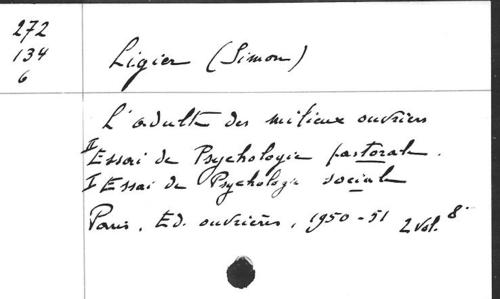 272
134
6
Ligier (Simon)
L'adulte des milieux ouvriers
II Essai de Psychologie pastorale.
I Essai de Psychologie sociale
Paris, Ed. ouvrières, 1950-51 2 vol. 8°